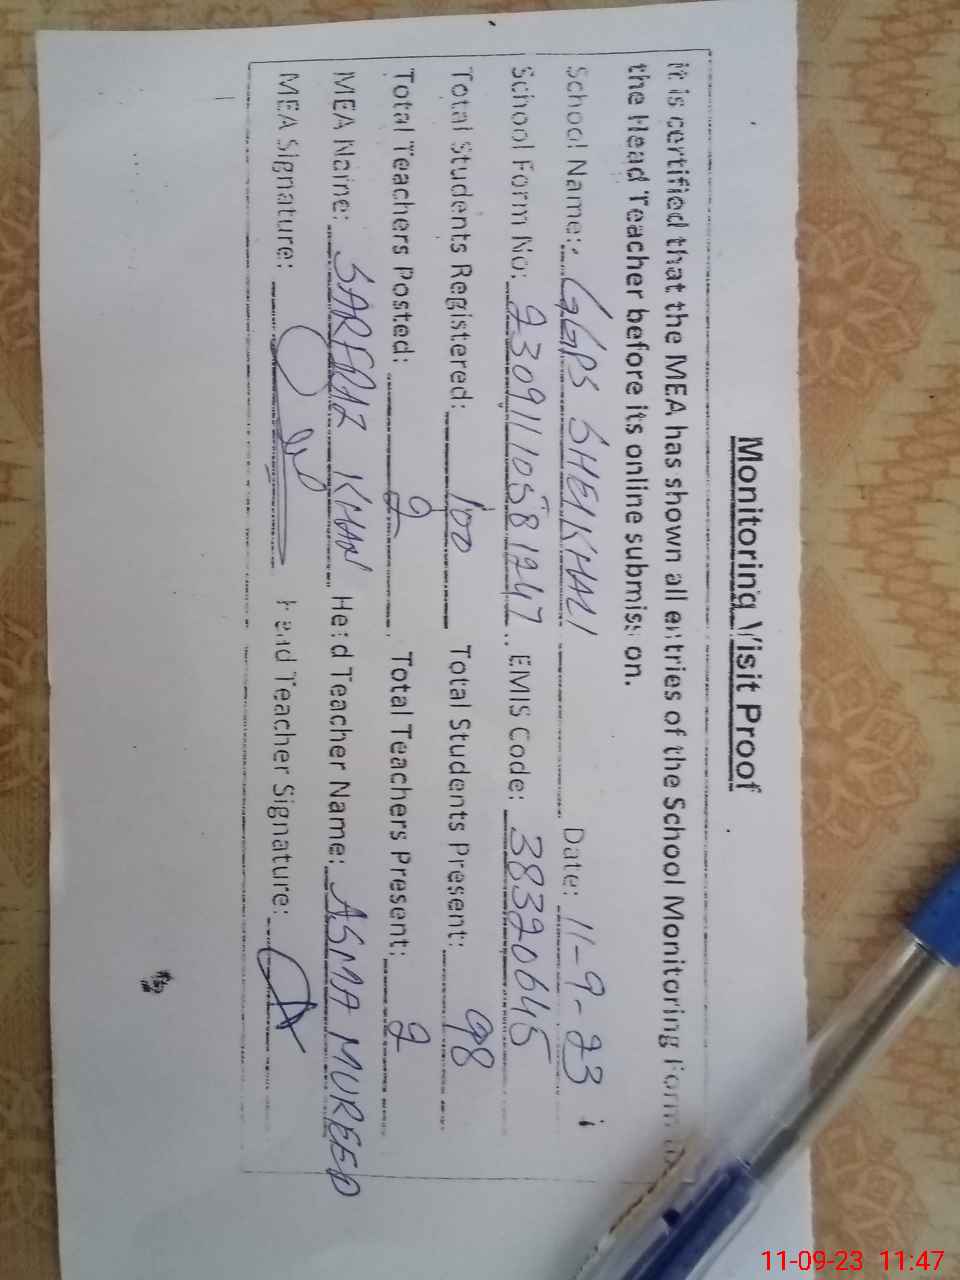 Monitoring Visit Proof
It is certified that the MEA has shown all entries of the School Monitoring Form to
the Head Teacher before its online submission.
School Name: GGPS SHEIKHALI Date: 11-9-23
School Form No: 23091110581247 EMIS Code: 38320645
Total Students Registered: 100 Total Students Present: 98
Total Teachers Posted: 2 Total Teachers Present: 2
MEA Name: SARFRAZ KHAN Head Teacher Name: ASMA MUREED
MEA Signature: Head Teacher Signature:
11-09-23 11:47